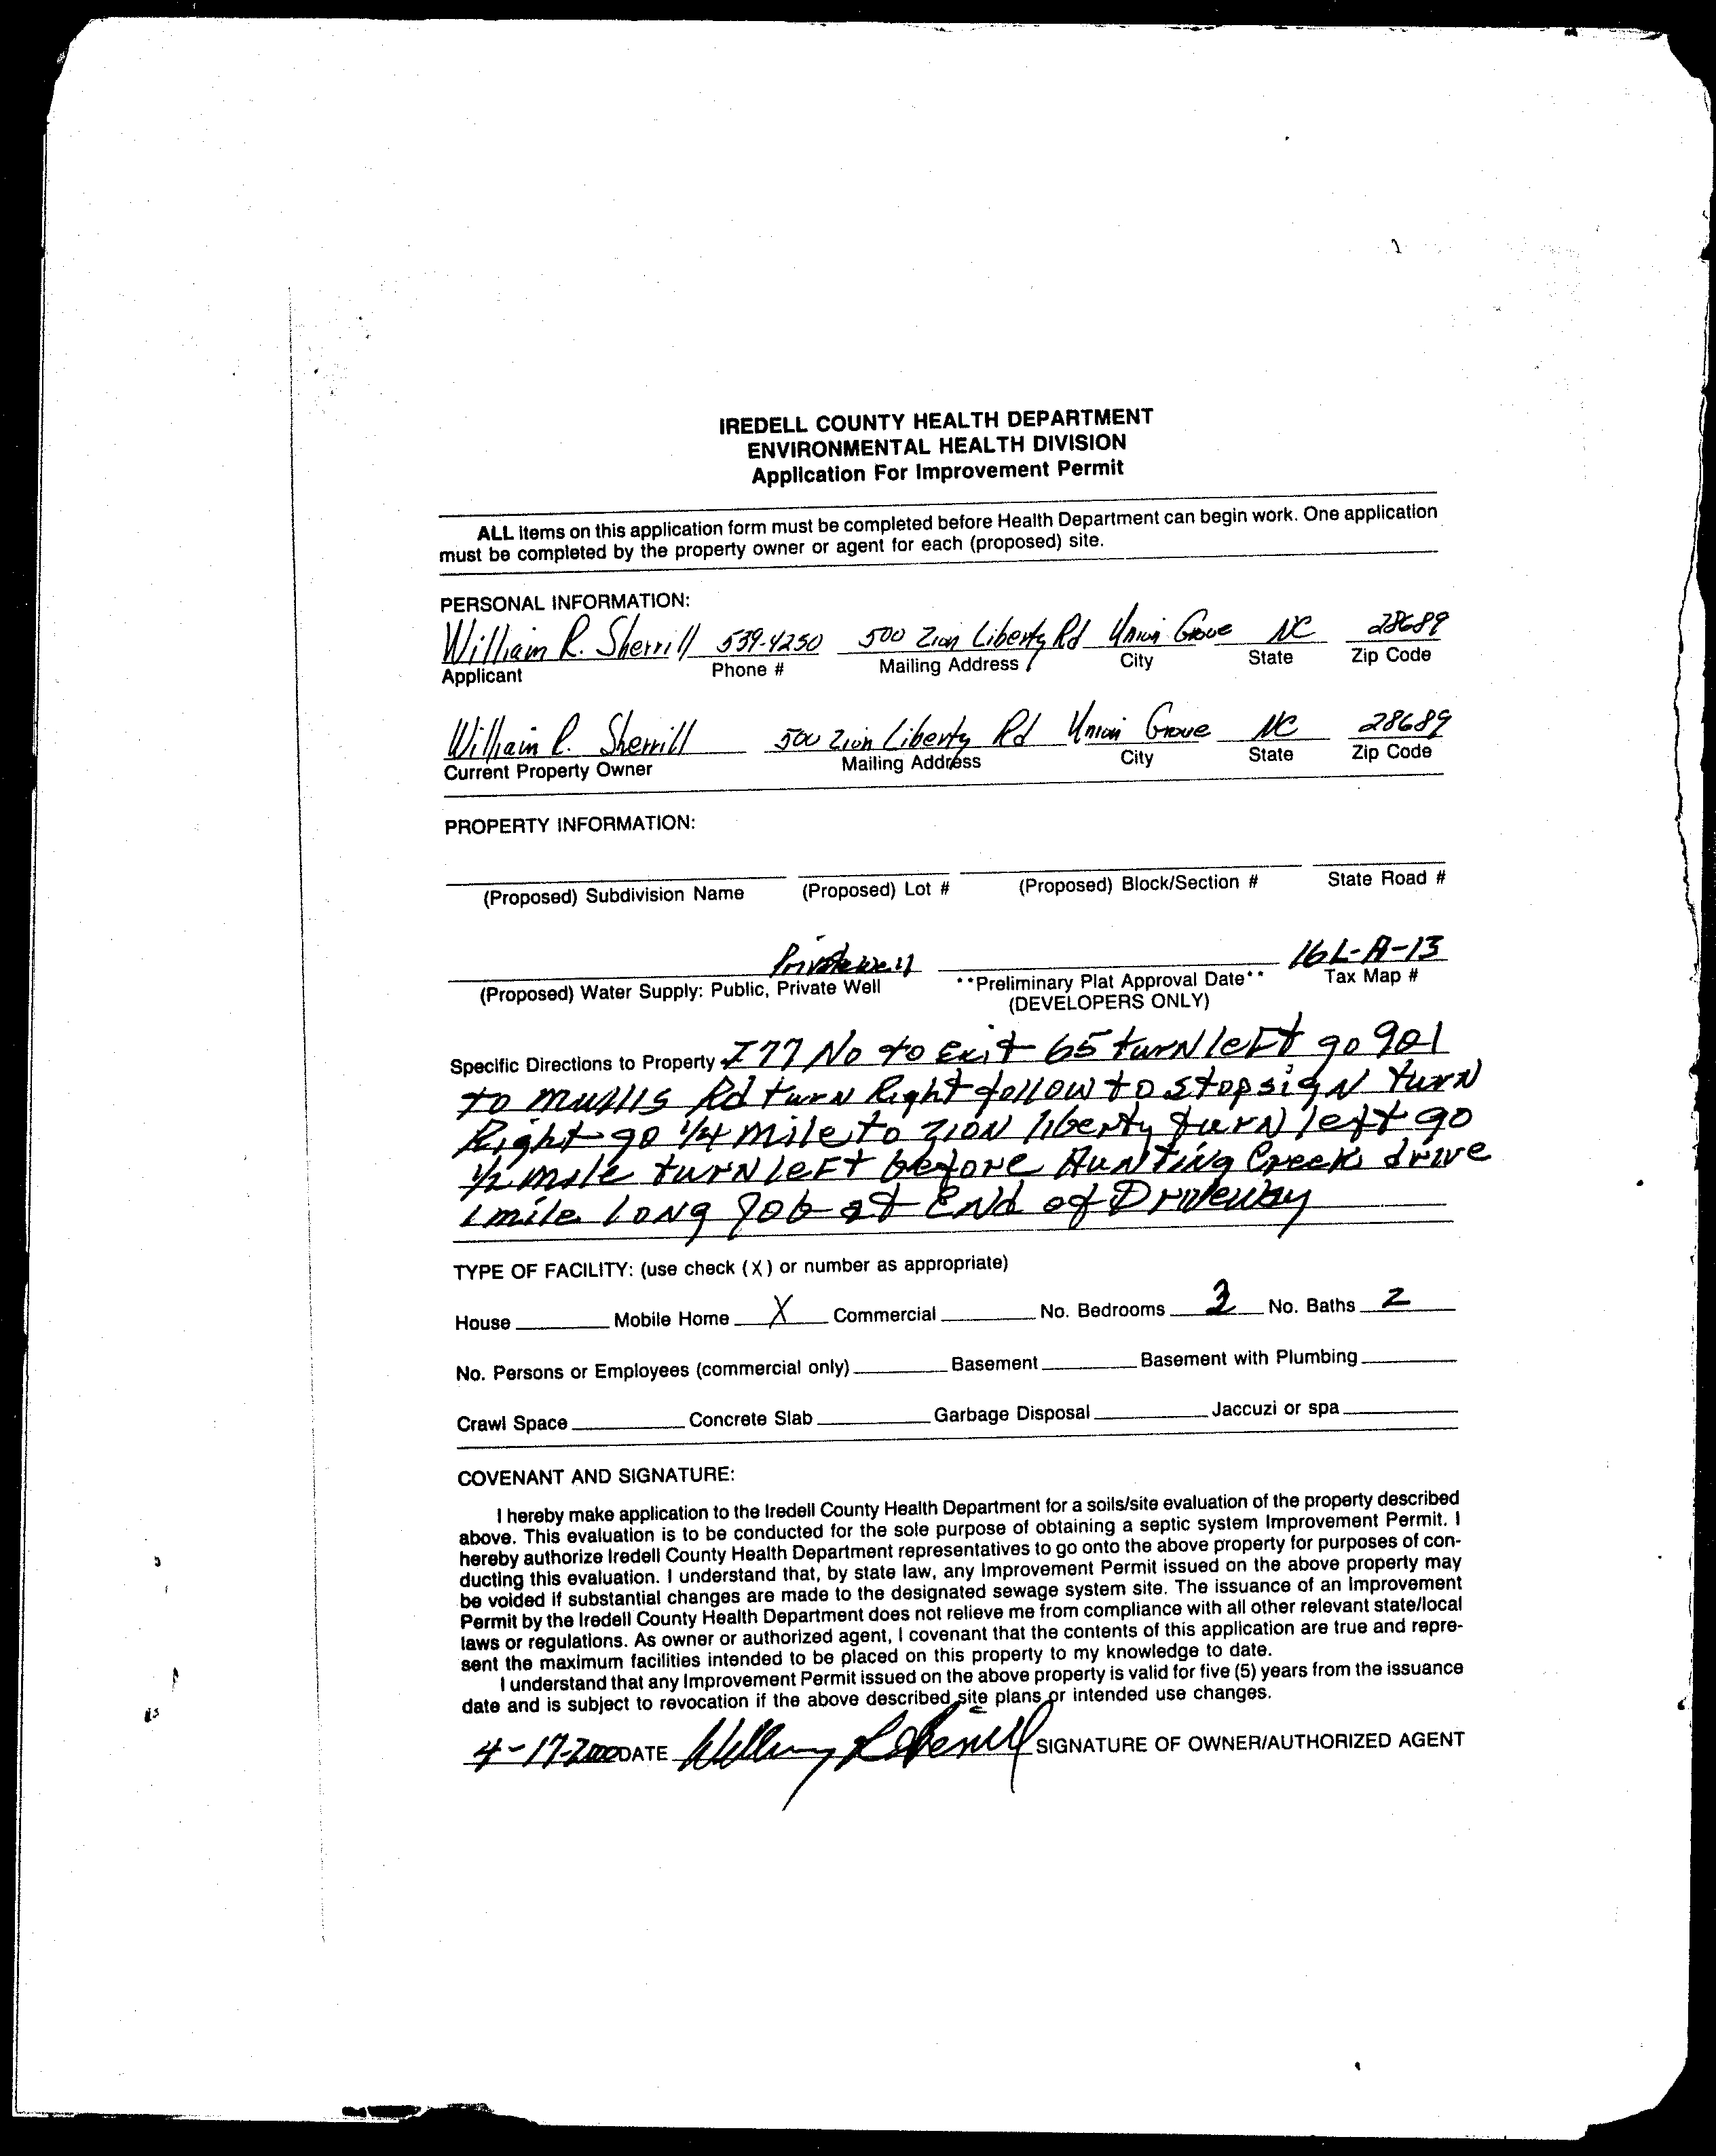 IREDELL COUNTY HEALTH DEPARTMENT
ENVIRONMENTAL HEALTH DIVISION
Application For Improvement Permit
ALL items on this application form must be completed before Health Department can begin work. One application
must be completed by the property owner or agent for each (proposed) site.
PERSONAL INFORMATION:
William R. Sherrill 539-4250 500 Zion Liberty Rd Union Grove NC 28689
Applicant Phone # Mailing Address City State Zip Code
William R. Sherrill 500 Zion Liberty Rd Union Grove NC 28689
Current Property Owner Mailing Address City State Zip Code
PROPERTY INFORMATION:
(Proposed) Subdivision Name (Proposed) Lot # (Proposed) Block/Section # State Road #
Private well 16L-A-13
(Proposed) Water Supply: Public, Private Well **Preliminary Plat Approval Date** Tax Map #
(DEVELOPERS ONLY)
Specific Directions to Property I77 No to Exit 65 turn left go 901
to Rd turn Right follow to stop sign turn
Right go 1/4 mile to zion liberty turn left go
1/2 mile turn left before Hunting Creek drive
1 mile long Job at End of Driveway
TYPE OF FACILITY: (use check (X) or number as appropriate)
House Mobile Home X Commercial No. Bedrooms 3 No. Baths 2
No. Persons or Employees (commercial only) Basement Basement with Plumbing
Crawl Space Concrete Slab Garbage Disposal Jaccuzi or spa
COVENANT AND SIGNATURE:
I hereby make application to the Iredell County Health Department for a soils/site evaluation of the property described
above. This evaluation is to be conducted for the sole purpose of obtaining a septic system Improvement Permit. I
hereby authorize Iredell County Health Department representatives to go onto the above property for purposes of con-
ducting this evaluation. I understand that, by state law, any Improvement Permit issued on the above property may
be voided if substantial changes are made to the designated sewage system site. The issuance of an Improvement
Permit by the Iredell County Health Department does not relieve me from compliance with all other relevant state/local
laws or regulations. As owner or authorized agent, I covenant that the contents of this application are true and repre-
sent the maximum facilities intended to be placed on this property to my knowledge to date.
I understand that any Improvement Permit issued on the above property is valid for five (5) years from the issuance
date and is subject to revocation if the above described site plans or intended use changes.
4-17-2000 DATE William R Sherrill SIGNATURE OF OWNER/AUTHORIZED AGENT